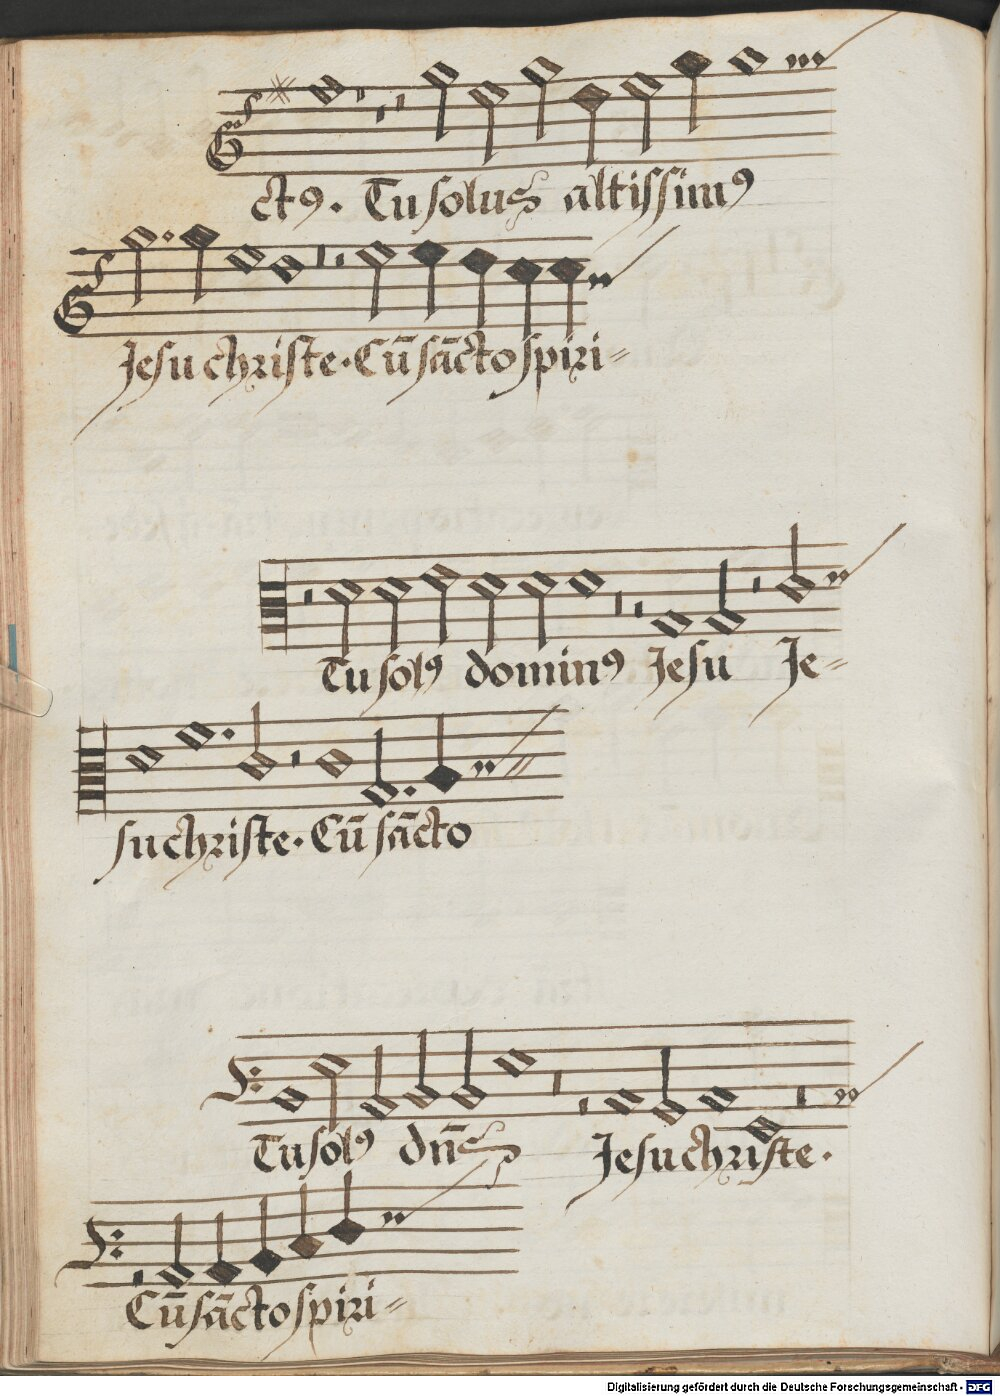 ctꝰ. Tu solus altissimꝰ
Jesu christe. Cū sācto spiri=
Tu solꝰ dominꝰ Jesu Je=
su christe. Cū sācto
Tu solꝰ dn̄s Jesu christe.
Cū sācto spiri=
Digitalisierung gefördert durch die Deutsche Forschungsgemeinschaft - DFG